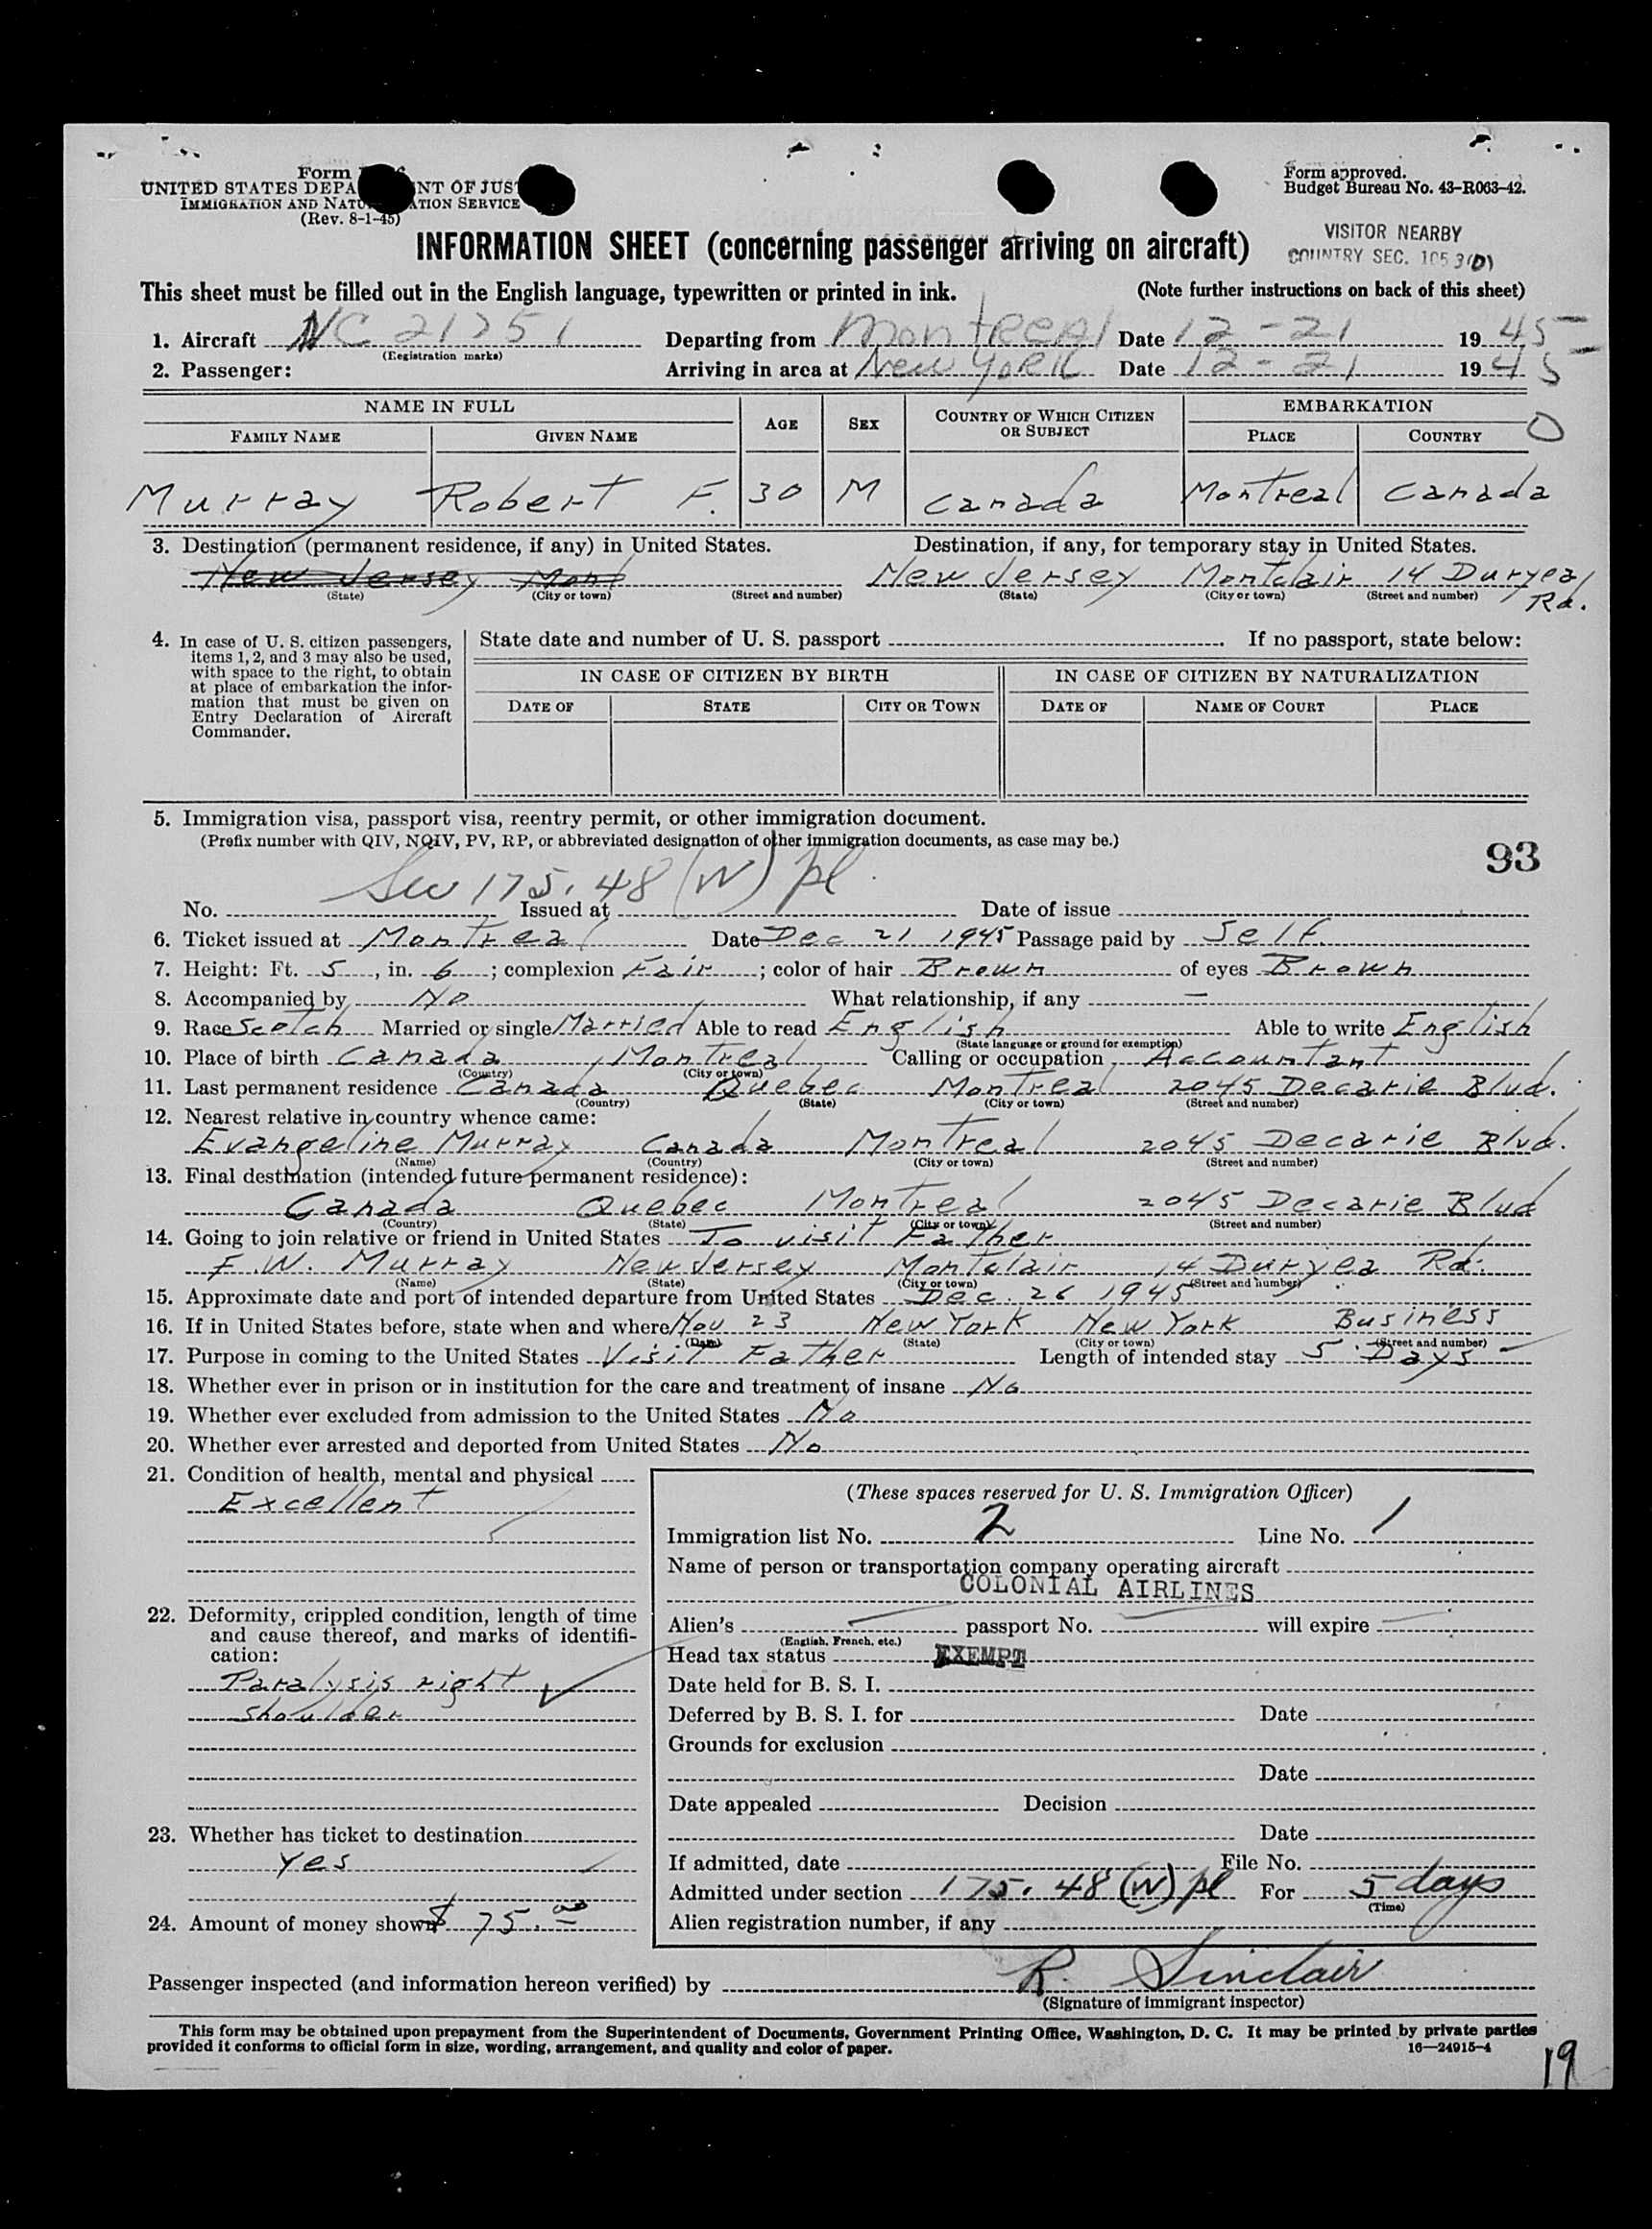 Form
UNITED STATES DEPA NT OF JUS
IMMIGRATION AND NATU ATION SERVICE
(Rev. 8-1-45)
Form approved.
Budget Bureau No. 43-R063-42.
VISITOR NEARBY
COUNTRY SEC.
INFORMATION SHEET (concerning passenger arriving on aircraft)
This sheet must be filled out in the English language, typewritten or printed in ink. (Note further instructions on back of this sheet)
1. Aircraft NC 21751 Departing from Montreal Date 12-21 1945
(Registration marks)
2. Passenger: Arriving in area at New York Date 12-21 1945
NAME IN FULL AGE SEX COUNTRY OF WHICH CITIZEN OR SUBJECT EMBARKATION
FAMILY NAME GIVEN NAME PLACE COUNTRY
0
Murray Robert F. 30 M Canada Montreal Canada
3. Destination (permanent residence, if any) in United States. Destination, if any, for temporary stay in United States.
New Jersey Mont New Jersey Montclair 14 Duryea Rd.
(State) (City or town) (Street and number) (State) (City or town) (Street and number)
4. In case of U. S. citizen passengers, items 1, 2, and 3 may also be used, with space to the right, to obtain at place of embarkation the information that must be given on Entry Declaration of Aircraft Commander.
State date and number of U. S. passport If no passport, state below:
IN CASE OF CITIZEN BY BIRTH IN CASE OF CITIZEN BY NATURALIZATION
DATE OF STATE CITY OR TOWN DATE OF NAME OF COURT PLACE
5. Immigration visa, passport visa, reentry permit, or other immigration document.
(Prefix number with QIV, NQIV, PV, RP, or abbreviated designation of other immigration documents, as case may be.)
93
175.48 (W) pl
No. Issued at Date of issue
6. Ticket issued at Montreal Date Dec 21 1945 Passage paid by Self
7. Height: Ft. 5, in. 6; complexion Fair; color of hair Brown of eyes Brown
8. Accompanied by No What relationship, if any —
9. Race Scotch Married or single Married Able to read English Able to write English
(State language or ground for exemption)
10. Place of birth Canada, Montreal Calling or occupation Accountant
(Country) (City or town)
11. Last permanent residence Canada Quebec Montreal 2045 Decarie Blvd.
(Country) (State) (City or town) (Street and number)
12. Nearest relative in country whence came:
Evangeline Murray Canada Montreal 2045 Decarie Blvd.
(Name) (Country) (City or town) (Street and number)
13. Final destination (intended future permanent residence):
Canada Quebec Montreal 2045 Decarie Blvd
(Country) (State) (City or town) (Street and number)
14. Going to join relative or friend in United States To visit Father
F. W. Murray New Jersey Montclair 14 Duryea Rd.
(Name) (State) (City or town) (Street and number)
15. Approximate date and port of intended departure from United States Dec. 26 1945
16. If in United States before, state when and where Nov 23 New York New York Business
(Date) (State) (City or town) (Street and number)
17. Purpose in coming to the United States Visit Father Length of intended stay 5 Days
18. Whether ever in prison or in institution for the care and treatment of insane No
19. Whether ever excluded from admission to the United States No
20. Whether ever arrested and deported from United States No
21. Condition of health, mental and physical
Excellent
22. Deformity, crippled condition, length of time
and cause thereof, and marks of identifi-
cation:
Paralysis right
shoulder
23. Whether has ticket to destination
Yes
24. Amount of money shown $75.00
(These spaces reserved for U. S. Immigration Officer)
Immigration list No. 2 Line No. 1
Name of person or transportation company operating aircraft
COLONIAL AIRLINES
Alien's passport No. will expire
(English, French, etc.)
Head tax status EXEMPT
Date held for B. S. I.
Deferred by B. S. I. for Date
Grounds for exclusion
Date
Date appealed Decision
Date
If admitted, date File No.
Admitted under section 175.48 (W) pl For 5 days
(Time)
Alien registration number, if any
Passenger inspected (and information hereon verified) by R. Sinclair
(Signature of immigrant inspector)
This form may be obtained upon prepayment from the Superintendent of Documents, Government Printing Office, Washington, D. C. It may be printed by private parties
provided it conforms to official form in size, wording, arrangement, and quality and color of paper. 16—24915-4
19